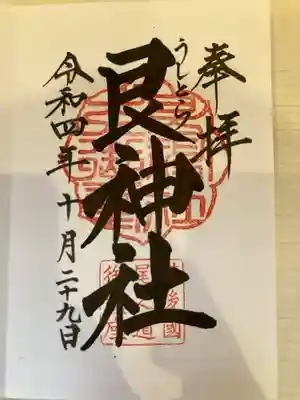 奉拝
うしとら
艮神社
令和四年十月二十九日